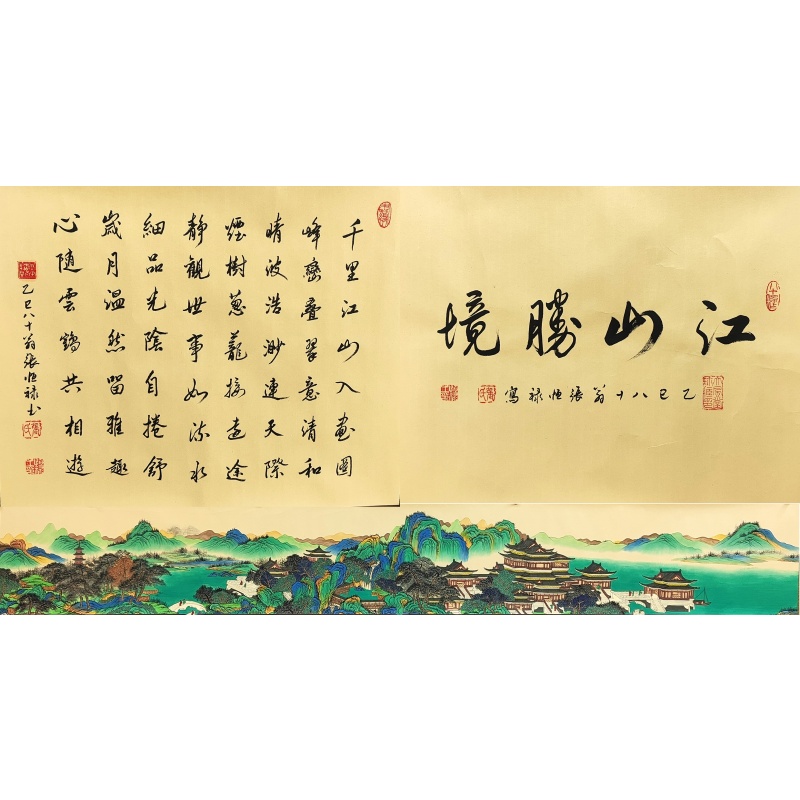 江山勝境
乙巳八十翁張恒祿寫
千里江山入畫圖
峰巒疊翠意清和
晴波浩渺連天際
煙樹蔥蘢接遠途
靜觀世事如流水
細品光陰自捲舒
歲月溫然留雅趣
心隨雲鶴共相遊
乙巳八十翁張恒祿書